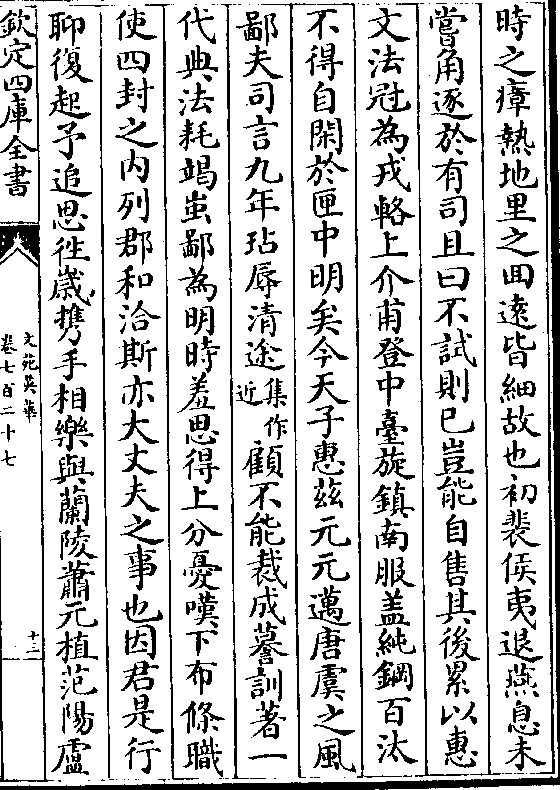 時之瘴熱地里之囬遠皆細故也初裴侯夷退燕息未
嘗角逐於有司且曰不試則已豈能自售其後累以惠
文法冠為戎輅上介甫登中臺旋鎮南服盖純鋼百汰
不得自閑於匣中明矣今天子惠茲元元邁唐虞之風
鄙夫司言九年玷辱清途集作近顧不能裁成謩訓著一
代典法耗竭蚩鄙為明時羞思得上分憂嘆下布條職
使四封之内列郡和洽斯亦大丈夫之事也因君是行
聊復起予追思徃歲携手相樂與蘭陵蕭元植范陽盧
欽定四庫全書
文苑英華
卷七百二十七
十三